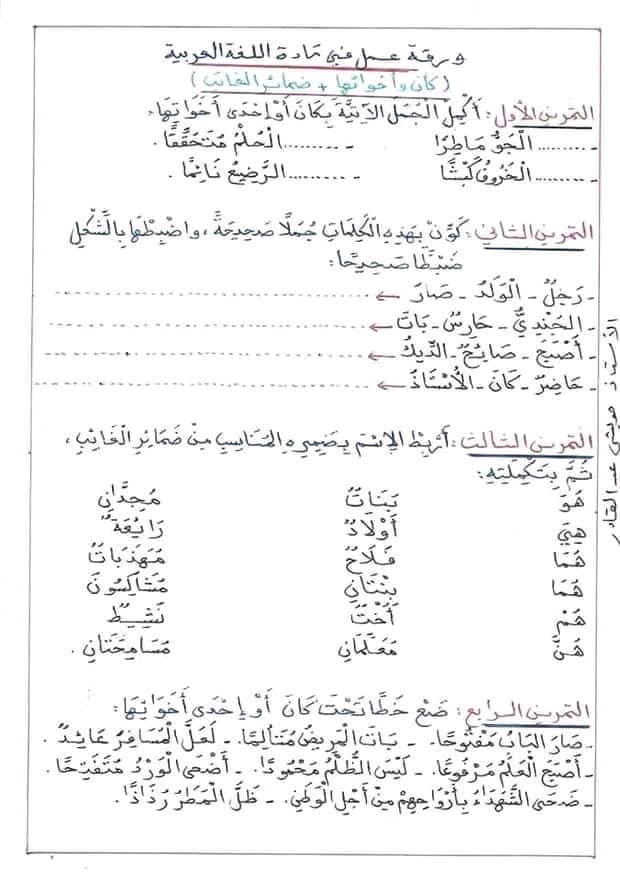 ورقة عمل في مادة اللغة العربية
( كان وأخواتها + ضمائر الغائب )
التمرين الأول: أَكْمِلِ الْجُمَلَ الآتِيَّةَ بِكَانَ أَوْ إِحْدَى أَخَوَاتِهَا.
- ......... الْجَوُّ مَاطِرًا - ......... الْحُلْمُ مُتَحَقِّقًا.
- ......... الْخَرُوفُ كَبْشًا - ......... الرَّضِيعُ نَائِمًا.
التمرين الثاني: كَوِّنْ بِهَذِهِ الْكَلِمَاتِ جُمَلًا صَحِيحَةً، وَاضْبِطْهَا بِالشَّكْلِ
ضَبْطًا صَحِيحًا:
- رَجُلٌ - الْوَلَدُ - صَارَ ← ..............................
- الْجُنْدِيُّ - حَارِسٌ - بَاتَ ← ..............................
- أَصْبَحَ - صَايِحٌ - الدِّيكُ ← ..............................
- حَاضِرٌ - كَانَ - الْأُسْتَاذُ ← ..............................
التمرين الثالث: أَرْبِطُ الاِسْمَ بِضَمِيرِهِ الْمُنَاسِبِ مِنْ ضَمَائِرِ الْغَائِبِ،
ثُمَّ بِتَكْمِلَتِهِ:
هُوَ بَنَاتٌ مُجِدَّانِ
هِيَ أَوْلَادٌ رَايِعَةٌ
هُمَا فَلَاحٌ مُهَذَّبَاتٌ
هُمَا بِنْتَانِ مُشَاكِسُونَ
هُمْ أُخْتٌ نَشِيطٌ
هُنَّ مُعَلِّمَانِ مُسَامِحَتَانِ.
التمرين الرابع: ضَعْ خَطًّا تَحْتَ كَانَ أَوْ إِحْدَى أَخَوَاتِهَا:
- صَارَ الْبَابُ مَفْتُوحًا. - بَاتَ الْمَرِيضُ مُتَأَلِّمًا. - لَعَلَّ الْمُسَافِرَ عَائِدٌ.
- أَصْبَحَ الْعَلَمُ مَرْفُوعًا. - لَيْسَ الظُّلْمُ مَحْمُودًا. - أَضْحَى الْوَرْدُ مُتَفَتِّحًا.
- ضَحَى الشُّهَدَاءُ بِأَرْوَاحِهِمْ مِنْ أَجْلِ الْوَطَنِ. - ظَلَّ الْمَطَرُ رُذَاذًا.
الأستاذ عبد القادر